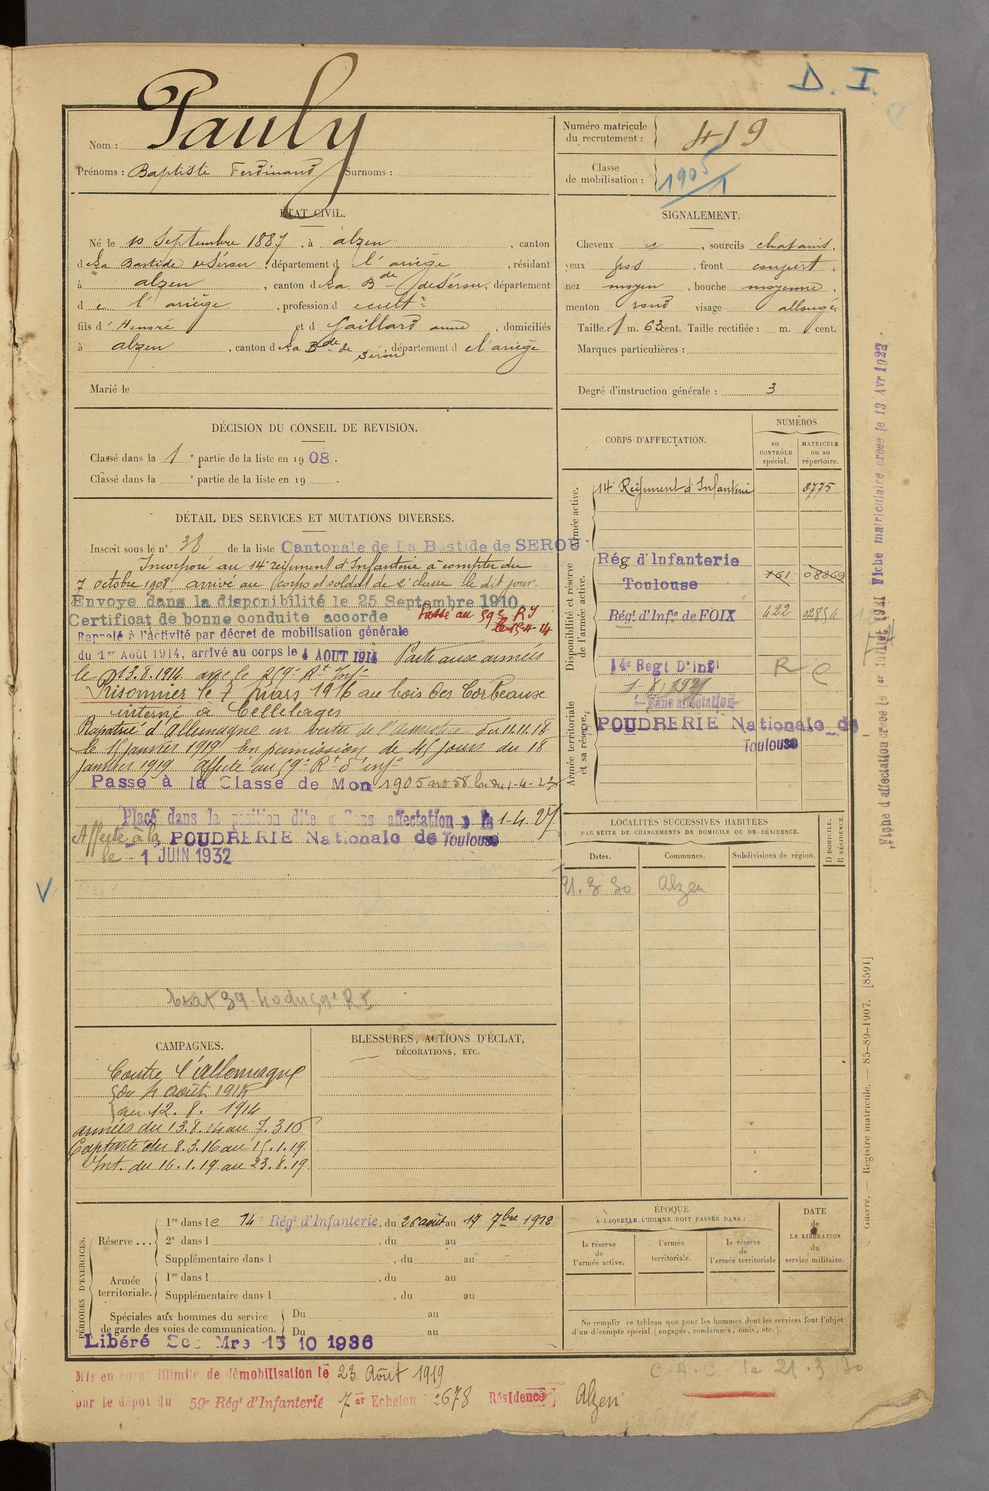 D. I.
Nom : Pauly
Prénoms : Baptiste Ferdinand Surnoms :
Numéro matricule du recrutement : 419
Classe de mobilisation : 1905
ÉTAT CIVIL.
Né le 10 Septembre 1887, à alzen, canton
de La Bastide de Sérou, département de l'ariège, résidant
à alzen, canton de La Bde de Sérou, département
de l'ariège, profession de cultr
fils d'Honoré et de Gaillard anna, domiciliés
à alzen, canton de La Bde de Sérou, département de l'ariège
Marié le
SIGNALEMENT.
Cheveux et, sourcils chatains,
yeux gris, front couvert,
nez moyen, bouche moyenne,
menton rond visage allongé
Taille : 1 m. 63 cent. Taille rectifiée : m. cent.
Marques particulières :
Degré d'instruction générale : 3
DÉCISION DU CONSEIL DE REVISION.
Classé dans la 1e partie de la liste en 1908.
Classé dans la e partie de la liste en 19
DÉTAIL DES SERVICES ET MUTATIONS DIVERSES.
Inscrit sous le n° 38 de la liste Cantonale de La Bastide de SEROU
Incorporé au 14e régiment d'Infanterie à compter du
7 octobre 1908, arrivé au Corps et soldat de 2e classe le dit jour.
Envoyé dans la disponibilité le 25 Septembre 1910
Certificat de bonne conduite accordé
Passé au 59e RI le 15-4-14
Rappelé à l'activité par décret de mobilisation générale
du 1er Août 1914, arrivé au corps le 4 AOUT 1914 Parti aux armées
le 13.8.1914 avec le 259e Rt Inf
Prisonnier le 7 mars 1916 au bois des Corbeaux
interné à Cellelages
Rapatrié d'Allemagne en vertu de l'armistice du 11.11.18
le 15 janvier 1919 En permission de 45 jours du 18
janvier 1919 affecté au 59e Rt d'inf
Passé à la Classe de Mon 1905 art 58 loi du 1-4-23
Placé dans la position dite « Sans affectation » le 1-4-27
Affecté à la POUDRERIE Nationale de Toulouse
le - 1 JUIN 1932
CORPS D'AFFECTATION.
NUMÉROS
au CONTRÔLE spécial.
MATRICULE ou au répertoire.
Armée active.
14e Régiment d'Infanterie 8775
Disponibilité et réserve de l'armée active.
Rég d'Infanterie
Toulouse 161 08369
Régt d'Infie de FOIX 422 02854
14e Regt D'Inf R C
Armée territoriale et sa réserve.
Sans affectation
POUDRERIE Nationale de
Toulouse
LOCALITÉS SUCCESSIVES HABITÉES
PAR SUITE DE CHANGEMENTS DE DOMICILE OU DE RÉSIDENCE.
Dates. Communes. Subdivisions de région. D DOMICILE. R RÉSIDENCE.
21.3 30 Alzen
CAMPAGNES.
Contre l'allemagne
du 4 août 1914
au 12. 8. 1914
armées du 13.8.14 au 7.3 16
Captivité du 8.3.16 au 15.1.19.
Int. du 16.1.19 au 23.8.19.
BLESSURES, ACTIONS D'ÉCLAT,
DÉCORATIONS, ETC.
PÉRIODES D'EXERCICES.
Réserve ...
1re dans le 14e Régt d'Infanterie, du 26 août au 17 7bre 1912
2e dans l , du au
Supplémentaire dans l , du au
Armée territoriale.
1re dans l , du au
Supplémentaire dans l , du au
Spéciales aux hommes du service
de garde des voies de communication.
Du au
Du au
Libéré Sce Mre 15 10 1936
ÉPOQUE
À LAQUELLE L'HOMME DOIT PASSER DANS :
la réserve de l'armée active.
l'armée territoriale.
la réserve de l'armée territoriale
DATE de LA LIBÉRATION du service militaire.
Ne remplir ce tableau que pour les hommes dont les services font l'objet
d'un décompte spécial (engagés, condamnés, omis, etc.).
Mis en congé illimité de démobilisation le 23 Août 1919
par le dépôt du 59e Régt d'Infanterie 7er Echelon 2678 Résidence Alzen
C.A.C. le 21.3 30
Fiche d'affectation créée le 1er Juillet 1921 Fiche matriculaire créée le 13 Avr 1922
Guerre. Registre matricule. — 85-89-1907. [8591]